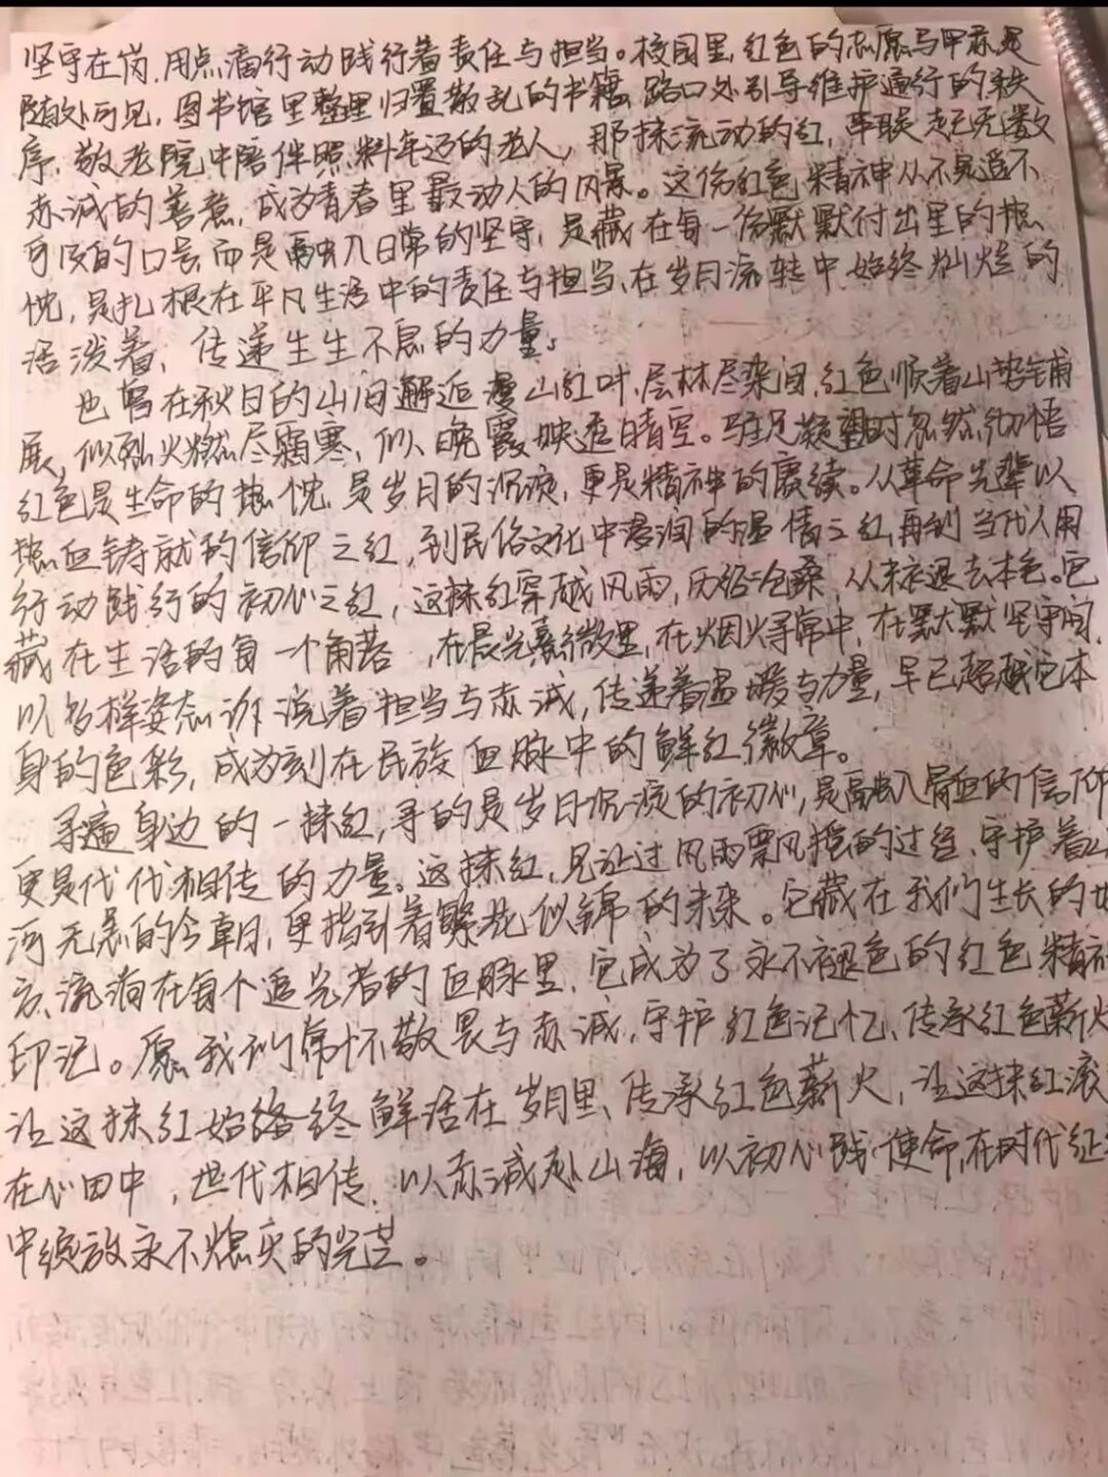 坚守在岗,用点滴行动践行着责任与担当。校园里,红色的志愿马甲亦是
随处可见,图书馆里整理归置散乱的书籍,路口处引导维护通行的秩
序,敬老院中陪伴照料年迈的老人,那抹流动的红,串联起无数
赤诚的善意,成为青春里最动人的风景。这份红色精神从不是遥不
可及的口号,而是融入日常的坚守,是藏在每一份默默付出里的热
忱,是扎根在平凡生活中的责任与担当,在岁月流转中始终灿烂的
活泼着,传递生生不息的力量。
也曾在秋日的山间邂逅漫山红叶,层林尽染间,红色顺着山势铺
展,似烈火燃尽霜寒,似晚霞映透晴空。驻足凝望时忽然彻悟
红色是生命的热忱,是岁月的沉淀,更是精神的赓续。从革命先辈以
热血铸就的信仰之红,到民俗文化中浸润的温情之红,再到当代人用
行动践行的初心之红,这抹红穿越风雨,历经沧桑,从未褪去本色。它
藏在生活的每一个角落,在晨光熹微里,在烟火寻常中,在默默坚守间,
以多样姿态诉说着担当与赤诚,传递着温暖与力量,早已超越它本
身的色彩,成为刻在民族血脉中的鲜红徽章。
寻遍身边的一抹红,寻的是岁月沉淀的初心,是融入骨血的信仰
更是代代相传的力量。这抹红,见证过风雨飘摇的过往,守护着山
河无恙的今朝,更指引着繁花似锦的未来。它藏在我们生长的地
方,流淌在每个追光者的血脉里,它成为了永不褪色的红色精神
印记。愿我们常怀敬畏与赤诚,守护红色记忆、传承红色薪火
让这抹红始终终鲜活在岁月里、传承红色薪火,让这抹红滚
在心田中,世代相传,以赤诚赴山海,以初心践使命,在时代征
中绽放永不熄灭的光芒。